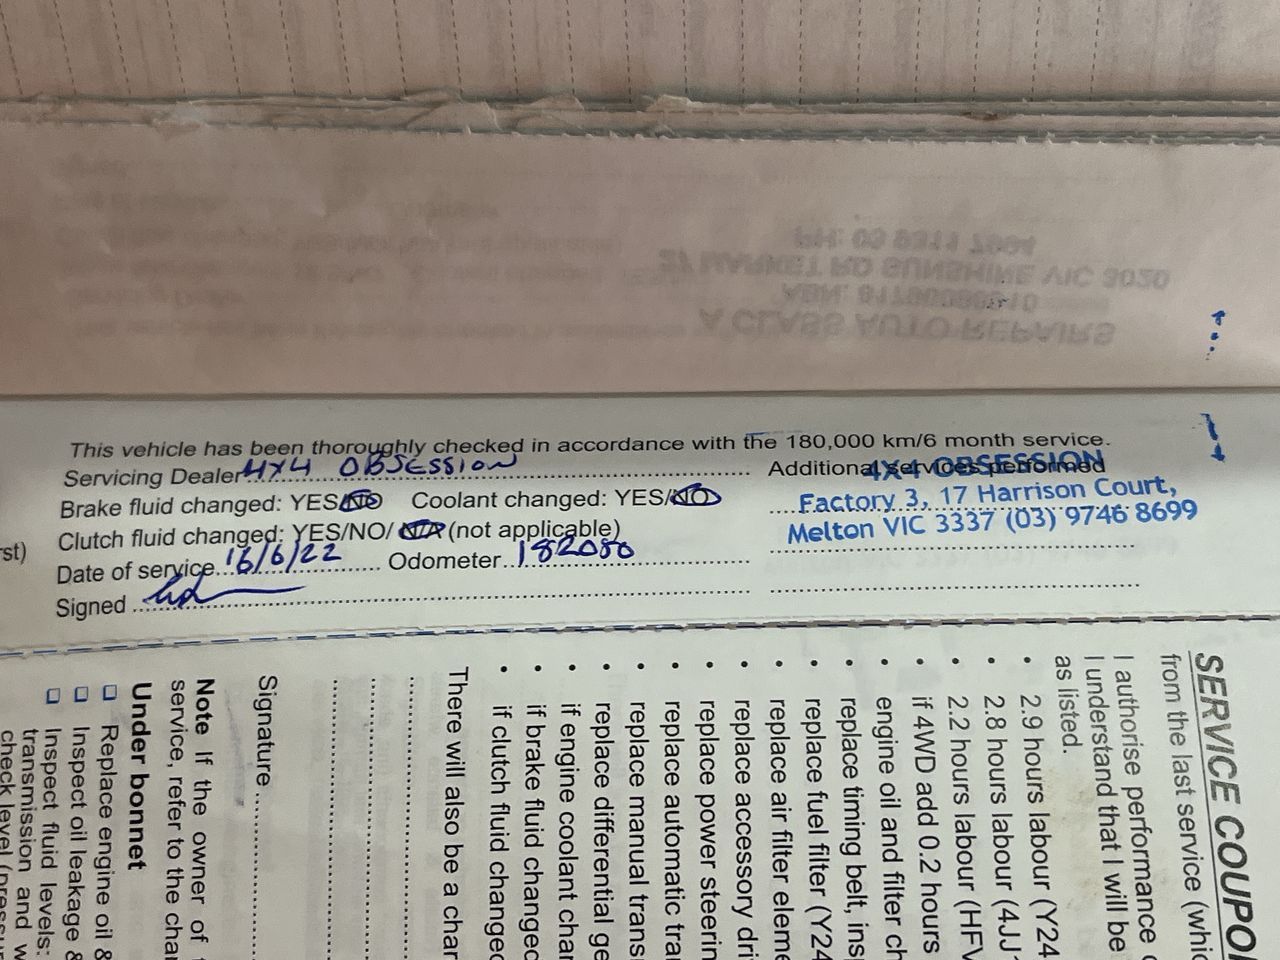 PH: 03 9311 2664
21 MARKET RD SUNSHINE VIC 3020
ABN:
A CLASS AUTO REPAIRS
This vehicle has been thoroughly checked in accordance with the 180,000 km/6 month service.
Servicing Dealer 4X4 OBSESSION
Brake fluid changed: YES/NO Coolant changed: YES/NO
Clutch fluid changed: YES/NO/ N/A (not applicable)
Date of service 16/6/22 Odometer 182080
Signed
Additional services performed
4X4 OBSESSION
Factory 3, 17 Harrison Court,
Melton VIC 3337 (03) 9746 8699
rst)
SERVICE COUPO
from the last service (whic
I authorise performance
I understand that I will be
as listed.
• 2.9 hours labour (Y24
• 2.8 hours labour (4JJ1
• 2.2 hours labour (HFV
• if 4WD add 0.2 hours
• engine oil and filter ch
• replace timing belt, ins
• replace fuel filter (Y24
• replace air filter eleme
• replace accessory dri
• replace power steerin
• replace automatic tra
• replace manual trans
• replace differential ge
• if engine coolant cha
• if brake fluid changed
• if clutch fluid changed
There will also be a char
Signature
Note If the owner of t
service, refer to the char
Under bonnet
Replace engine oil &
Inspect oil leakage &
Inspect fluid levels:
transmission and w
check level (pressu